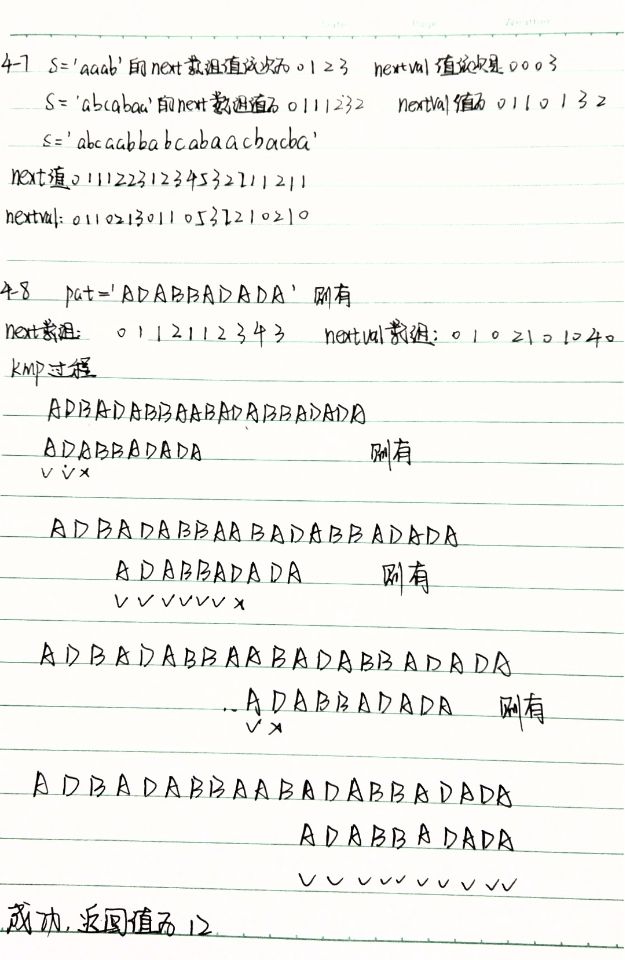 4-7 S='aaab'的next数组值依次为0123 nextval值依次是0003
S='abcabaa'的next数组值为0111232 nextval值为0110132
S='abcaabbabcabaacbacba'
next值01112231234532211211
nextval:01102130110532210210
4-8 pat='ADABBADADA' 则有
next数组: 0112112343 nextval数组:0102101040
kmp过程
ADBADABBAABADABBADADA
ADABBADADA 则有
√√×
ADBADABBAABADABBADADA
ADABBADADA 则有
√√√√√√×
ADBADABBAABADABBADADA
..ADABBADADA 则有
√×
ADBADABBAABADABBADADA
ADABBADADA
√√√√√√√√√
成功,返回值为12